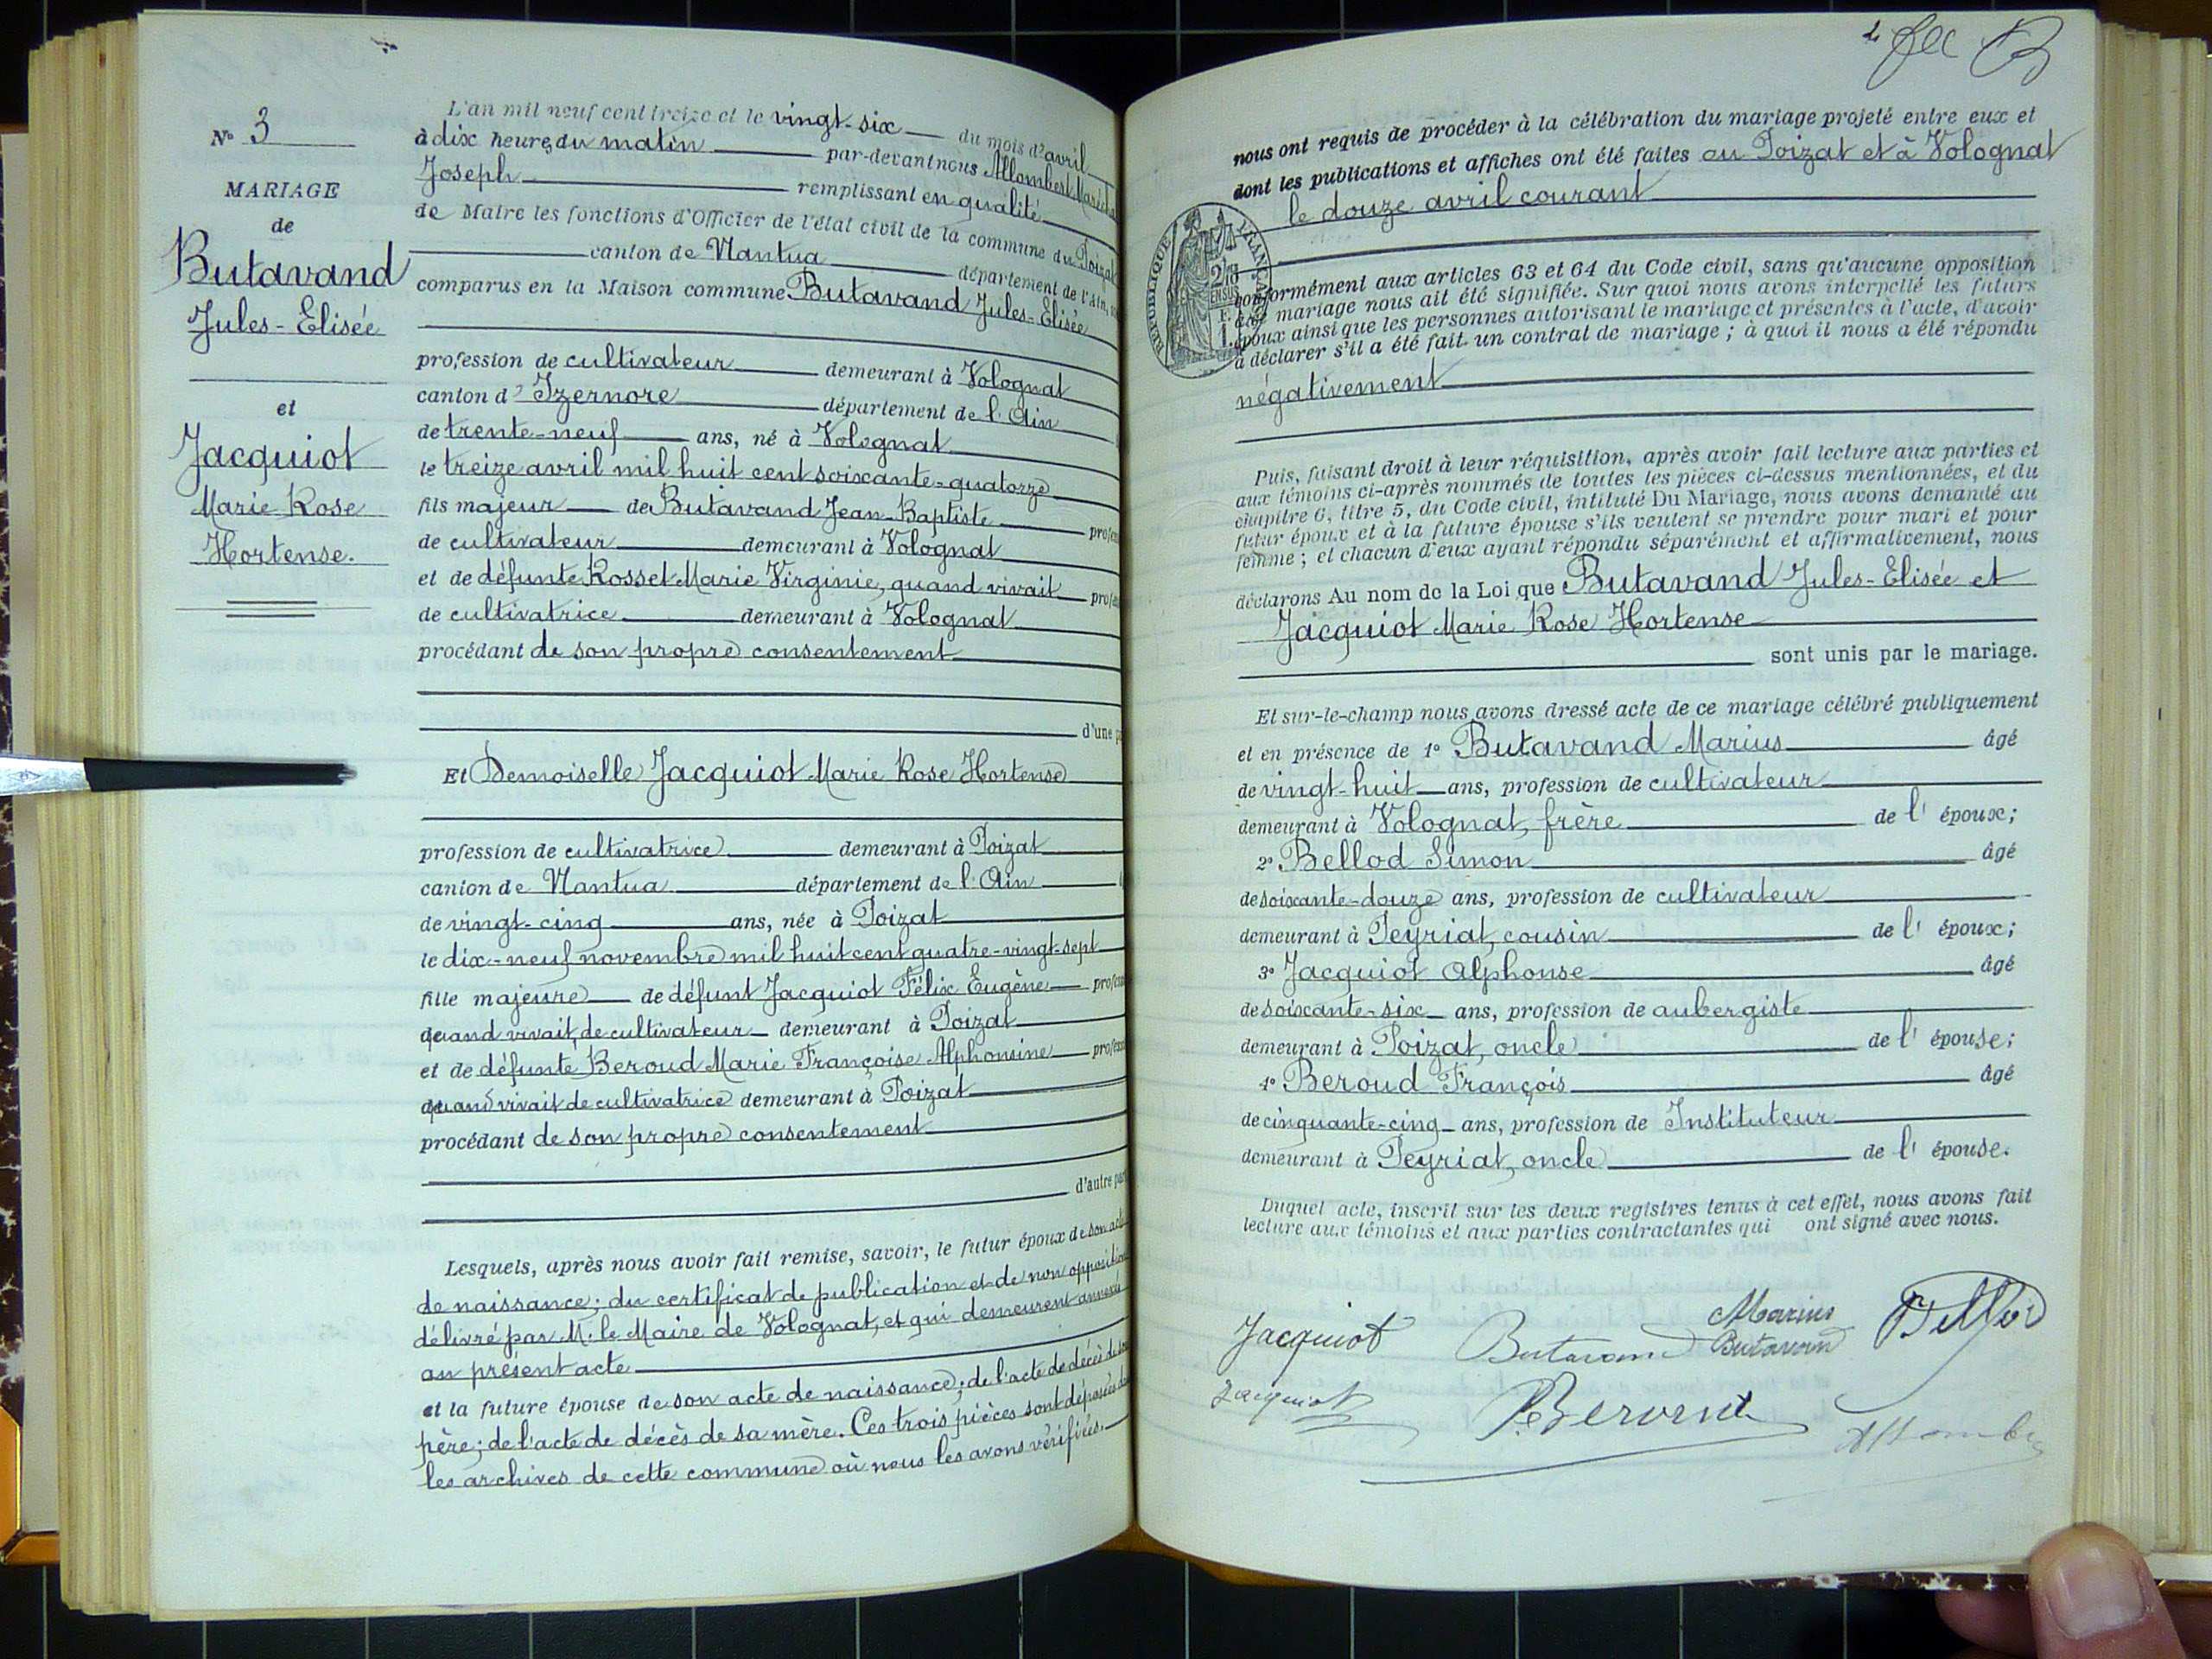 N° 3
MARIAGE
de
Butavand
Jules-Elisée
et
Jacquiot
Marie Rose
Hortense.
L'an mil neuf cent treize et le vingt-six du mois d'avril
à dix heures du matin par-devant nous Allombert
Joseph remplissant en qualité
de Maire les fonctions d'Officier de l'état civil de la commune du Poizat
canton de Nantua département de l'Ain,
comparus en la Maison commune Butavand Jules-Elisée
profession de cultivateur demeurant à Volognat
canton d' Izernore département de l'Ain
de trente-neuf ans, né à Volognat
le treize avril mil huit cent soixante-quatorze
fils majeur de Butavand Jean-Baptiste
de cultivateur demeurant à Volognat
et de défunte Rosset Marie Virginie, quand vivait
de cultivatrice demeurant à Volognat
procédant de son propre consentement
d'une
Et Demoiselle Jacquiot Marie Rose Hortense
profession de cultivatrice demeurant à Poizat
canton de Nantua département de l'Ain
de vingt-cinq ans, née à Poizat
le dix-neuf novembre mil huit cent quatre-vingt-sept
fille majeure de défunt Jacquiot Félix Eugène
quand vivait, de cultivateur demeurant à Poizat
et de défunte Beroud Marie Françoise Alphonsine
quand vivait de cultivatrice demeurant à Poizat
procédant de son propre consentement
d'autre
Lesquels, après nous avoir fait remise, savoir, le futur époux de son
de naissance; du certificat de publication et de non
délivré par M. le Maire de Volognat, et qui demeurent
au présent acte
et la future épouse de son acte de naissance; de l'acte de décès
père; de l'acte de décès de sa mère. Ces trois pièces sont
les archives de cette commune où nous les avons vérifiées.
nous ont requis de procéder à la célébration du mariage projeté entre eux et
dont les publications et affiches ont été faites au Poizat et à Volognat
le douze avril courant
conformément aux articles 63 et 64 du Code civil, sans qu'aucune opposition
mariage nous ait été signifiée. Sur quoi nous avons interpellé les futurs
époux ainsi que les personnes autorisant le mariage et présentes à l'acte, d'avoir
à déclarer s'il a été fait un contrat de mariage; à quoi il nous a été répondu
négativement
Puis, faisant droit à leur réquisition, après avoir fait lecture aux parties et
aux témoins ci-après nommés de toutes les pièces ci-dessus mentionnées, et du
chapitre 6, titre 5, du Code civil, intitulé Du Mariage, nous avons demandé au
futur époux et à la future épouse s'ils veulent se prendre pour mari et pour
femme; et chacun d'eux ayant répondu séparément et affirmativement, nous
déclarons Au nom de la Loi que Butavand Jules-Elisée et
Jacquiot Marie Rose Hortense
sont unis par le mariage.
Et sur-le-champ nous avons dressé acte de ce mariage célébré publiquement
et en présence de 1° Butavand Marius âgé
de vingt-huit ans, profession de cultivateur
demeurant à Volognat, frère de l'époux;
2° Bellod Simon âgé
de soixante-douze ans, profession de cultivateur
demeurant à Peyriat, cousin de l'époux;
3° Jacquiot Alphonse âgé
de soixante-six ans, profession de aubergiste
demeurant à Poizat, oncle de l'épouse;
4° Beroud François âgé
de cinquante-cinq ans, profession de Instituteur
demeurant à Peyriat, oncle de l'épouse.
Duquel acte, inscrit sur les deux registres tenus à cet effet, nous avons fait
lecture aux témoins et aux parties contractantes qui ont signé avec nous.
Jacquiot Butavand Marius
Butavand
Jacquiot